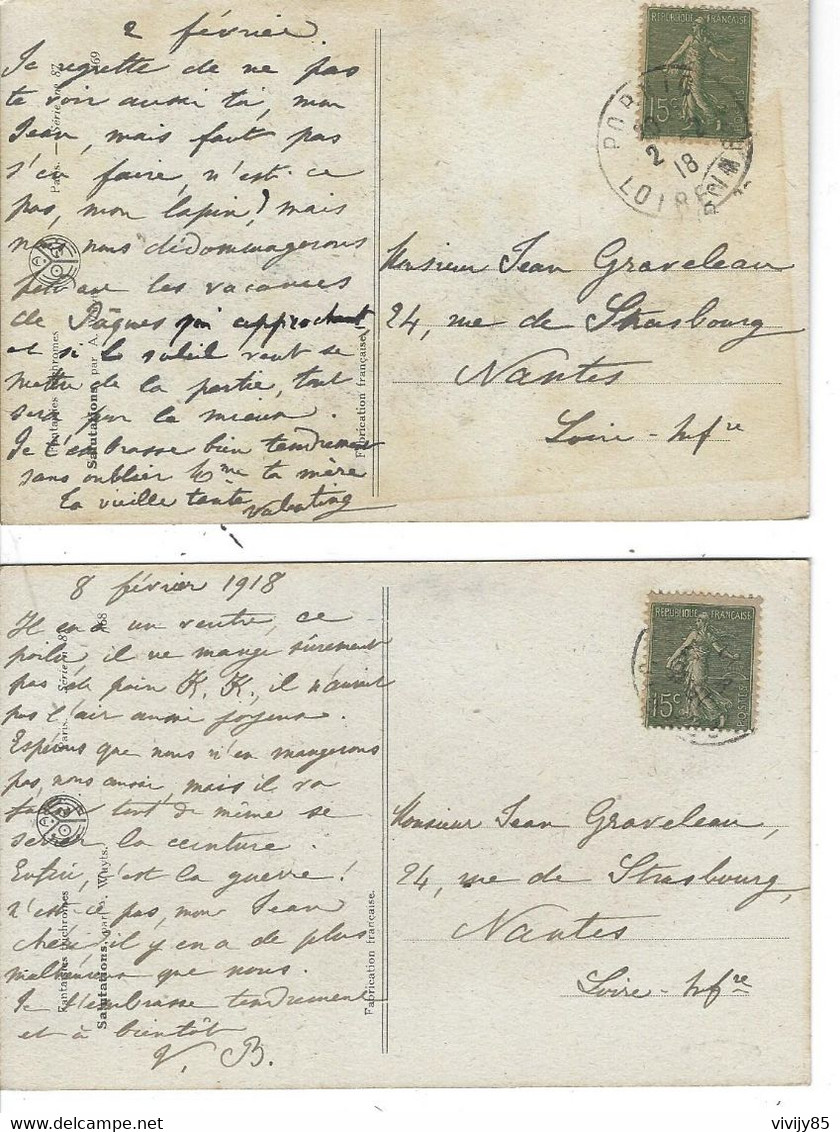 2 février
Je regrette de ne pas
te voir aussi tôt, mon
Jean, mais faut pas
s'en faire, n'est-ce
pas, mon lapin! mais
nous nous dédommagerons
pendant les vacances
de Pâques qui approchent,
et si le soleil veut se
mettre de la partie, tout
sera pour le mieux.
Je t'embrasse bien tendrement
sans oublier ta mère
Ta vieille tante Valentine
Paris. — Série no 87
Fantaisies Trichromes
Salutations, par A.
Fabrication française.
REPUBLIQUE FRANÇAISE
15c
2 18
LOIRE
Monsieur Jean Graveleau
24, rue de Strasbourg
Nantes
Loire-Infre
8 février 1918
Il en a un ventre, ce
poilu, il ne mange sûrement
pas de pain K.K., il n'aurait
pas l'air aussi joyeux.
Espérons que nous n'en mangerons
pas, nous aussi, mais il va
falloir tout de même se
serrer la ceinture.
Enfin, c'est la guerre!
n'est-ce pas, mon Jean
chéri il y en a de plus
malheureux que nous.
Je t'embrasse tendrement
et à bientôt
V. B.
Paris. Série n 87
Fantaisies Trichromes
Salutations, par A. Wuyts.
Fabrication française.
REPUBLIQUE FRANÇAISE
15c
POSTES
Monsieur Jean Graveleau,
24, rue de Strasbourg,
Nantes
Loire-Infre
delcampe.net
vivijy85